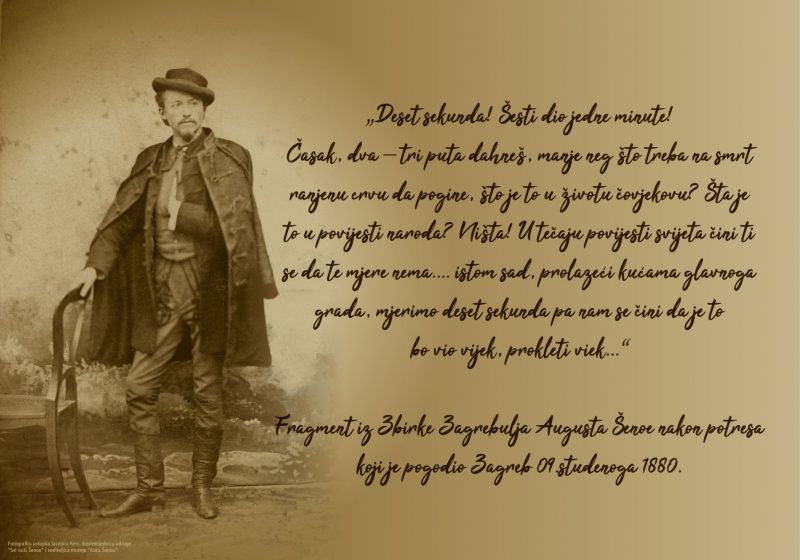 „Deset sekunda! Šesti dio jedne minute!
Časak, dva – tri puta dahneš, manje neg što treba na smrt
ranjenu crvu da pogine, što je to u životu čovjekovu? Šta je
to u povijesti naroda? Ništa! U tečaju povijesti svijeta čini ti
se da te mjere nema.... istom sad, prolazeći kućama glavnoga
grada, mjerimo deset sekunda pa nam se čini da je to
bo vio vijek, prokleti viek...“
Fragment iz Zbirke Zagrebulja Augusta Šenoe nakon potresa
koji je pogodio Zagreb 09.studenoga 1880.
Fotografiju ustupila Jasmina Reis, dopredsjednica udruge
"Svi naši Šenoe" i voditeljica muzeja "Kuća Šenoa"